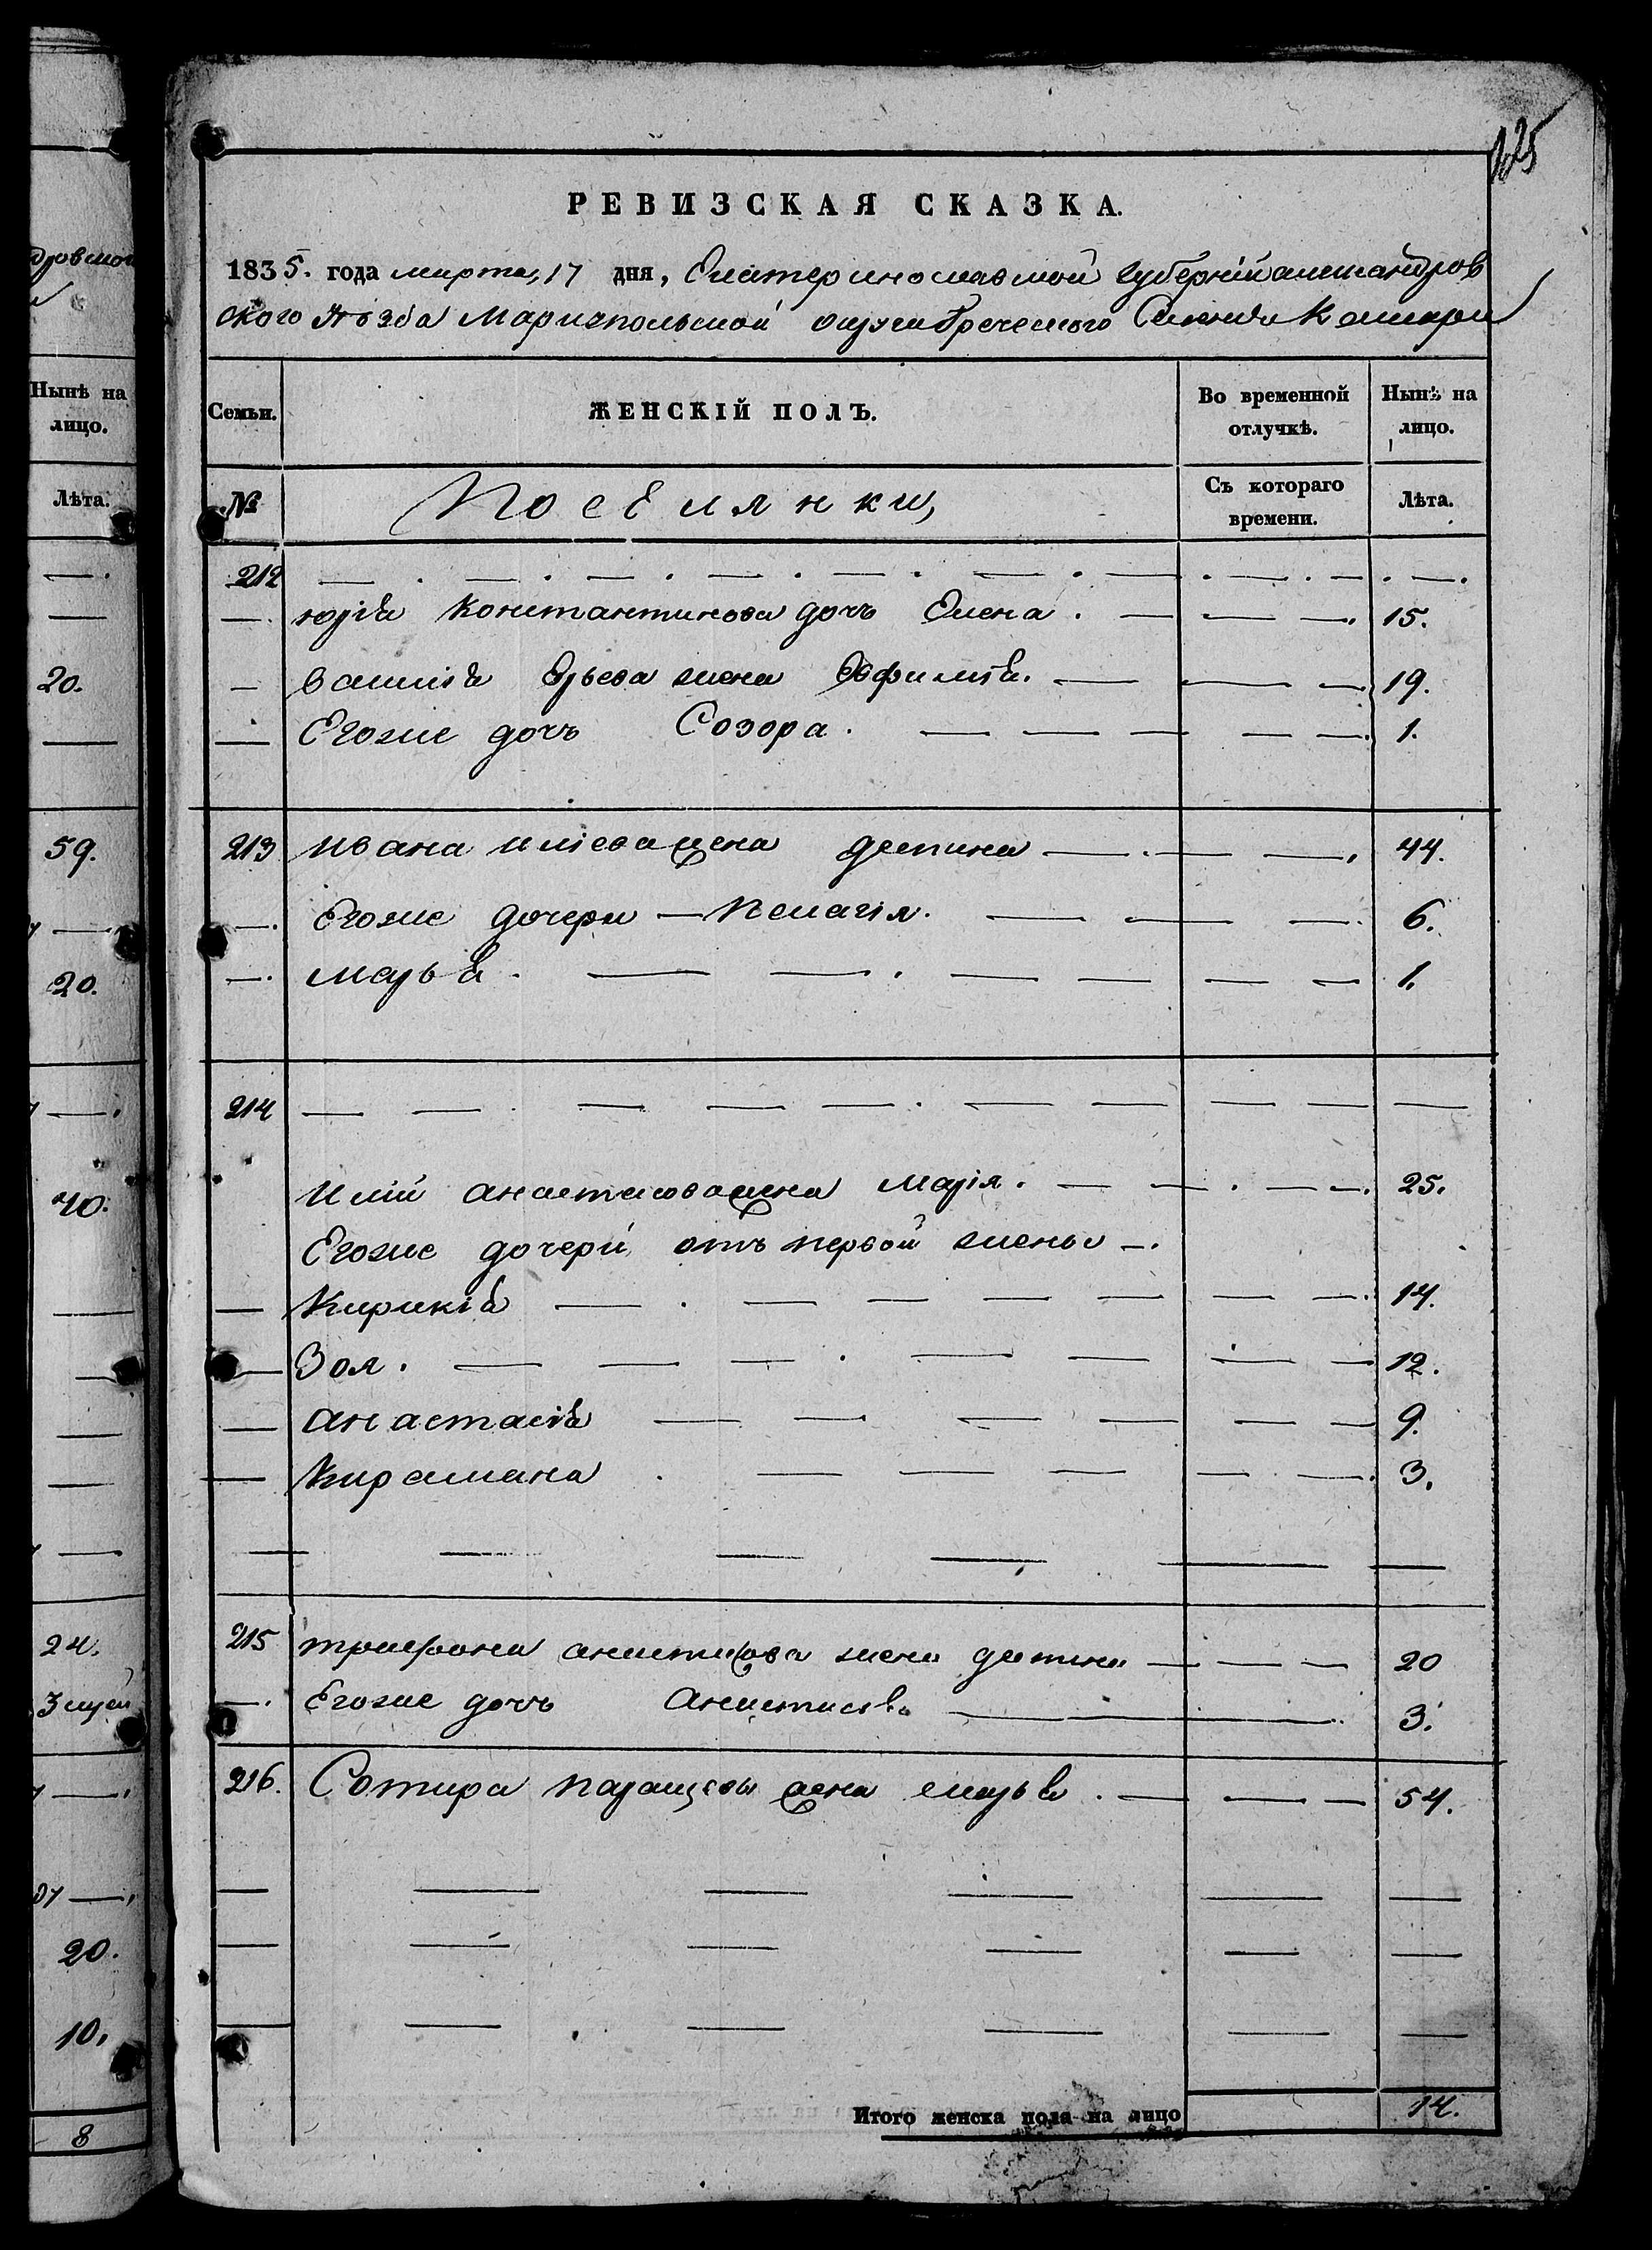 125
РЕВИЗСКАЯ СКАЗКА.
1835. года марта, 17 дня, Екатеринославской губерніи александров
ского уѣзда Мариупольской округи Греческого Селенія
Семьи.
ЖЕНСКІЙ ПОЛЪ.
Во временной отлучкѣ.
Нынѣ на лицо.
№
Поселянки,
Съ котораго времени.
Лѣта.
212
юрія Константинова дочь Елена. 15.
василія Юрьева жена Евфимія. 19.
Егоже дочь Созора. 1.
213 ивана иліева жена деспина 44.
Егоже дочери Пелагія. 6.
марья. 1.
214
иліи анастасова жена марія. 25.
Егоже дочери отъ первой жены
Кирикія 14.
Зоя. 12.
анастасія 9.
Кирамана 3.
215 трифона анастасова жена деспина 20
Егоже дочь анастасія 3.
216. Сотира жена марья. 54.
Итого женска пола на лицо 14.
Нынѣ на лицо.
Лѣта.
20.
59.
20.
40.
24.
20.
10.
8